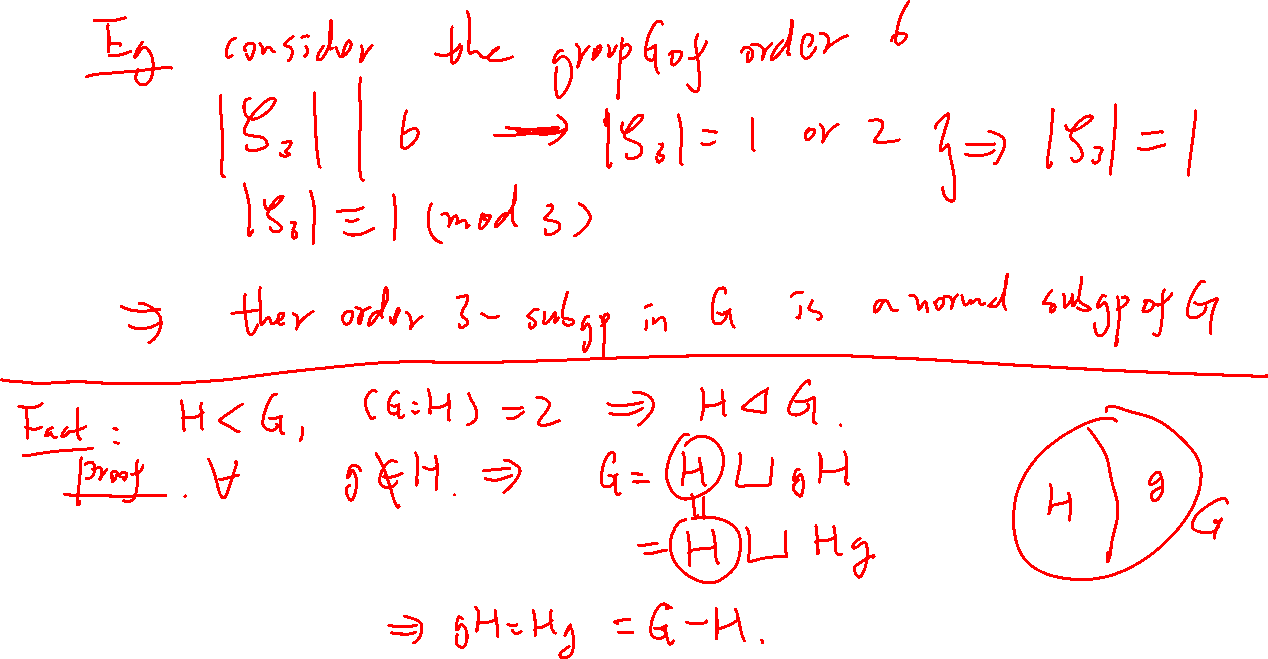 Eg consider the group G of order 6
|𝒮₃| | 6 → |𝒮₃| = 1 or 2 } ⇒ |𝒮₃| = 1
|𝒮₃| ≡ 1 (mod 3)
⇒ ther order 3-subgp in G is a normal subgp of G
Fact: H < G, (G:H) = 2 ⇒ H ⊲ G.
proof. ∀ g ∉ H. ⇒ G = H ⊔ gH
= H ⊔ Hg
⇒ gH = Hg = G - H.
H g G